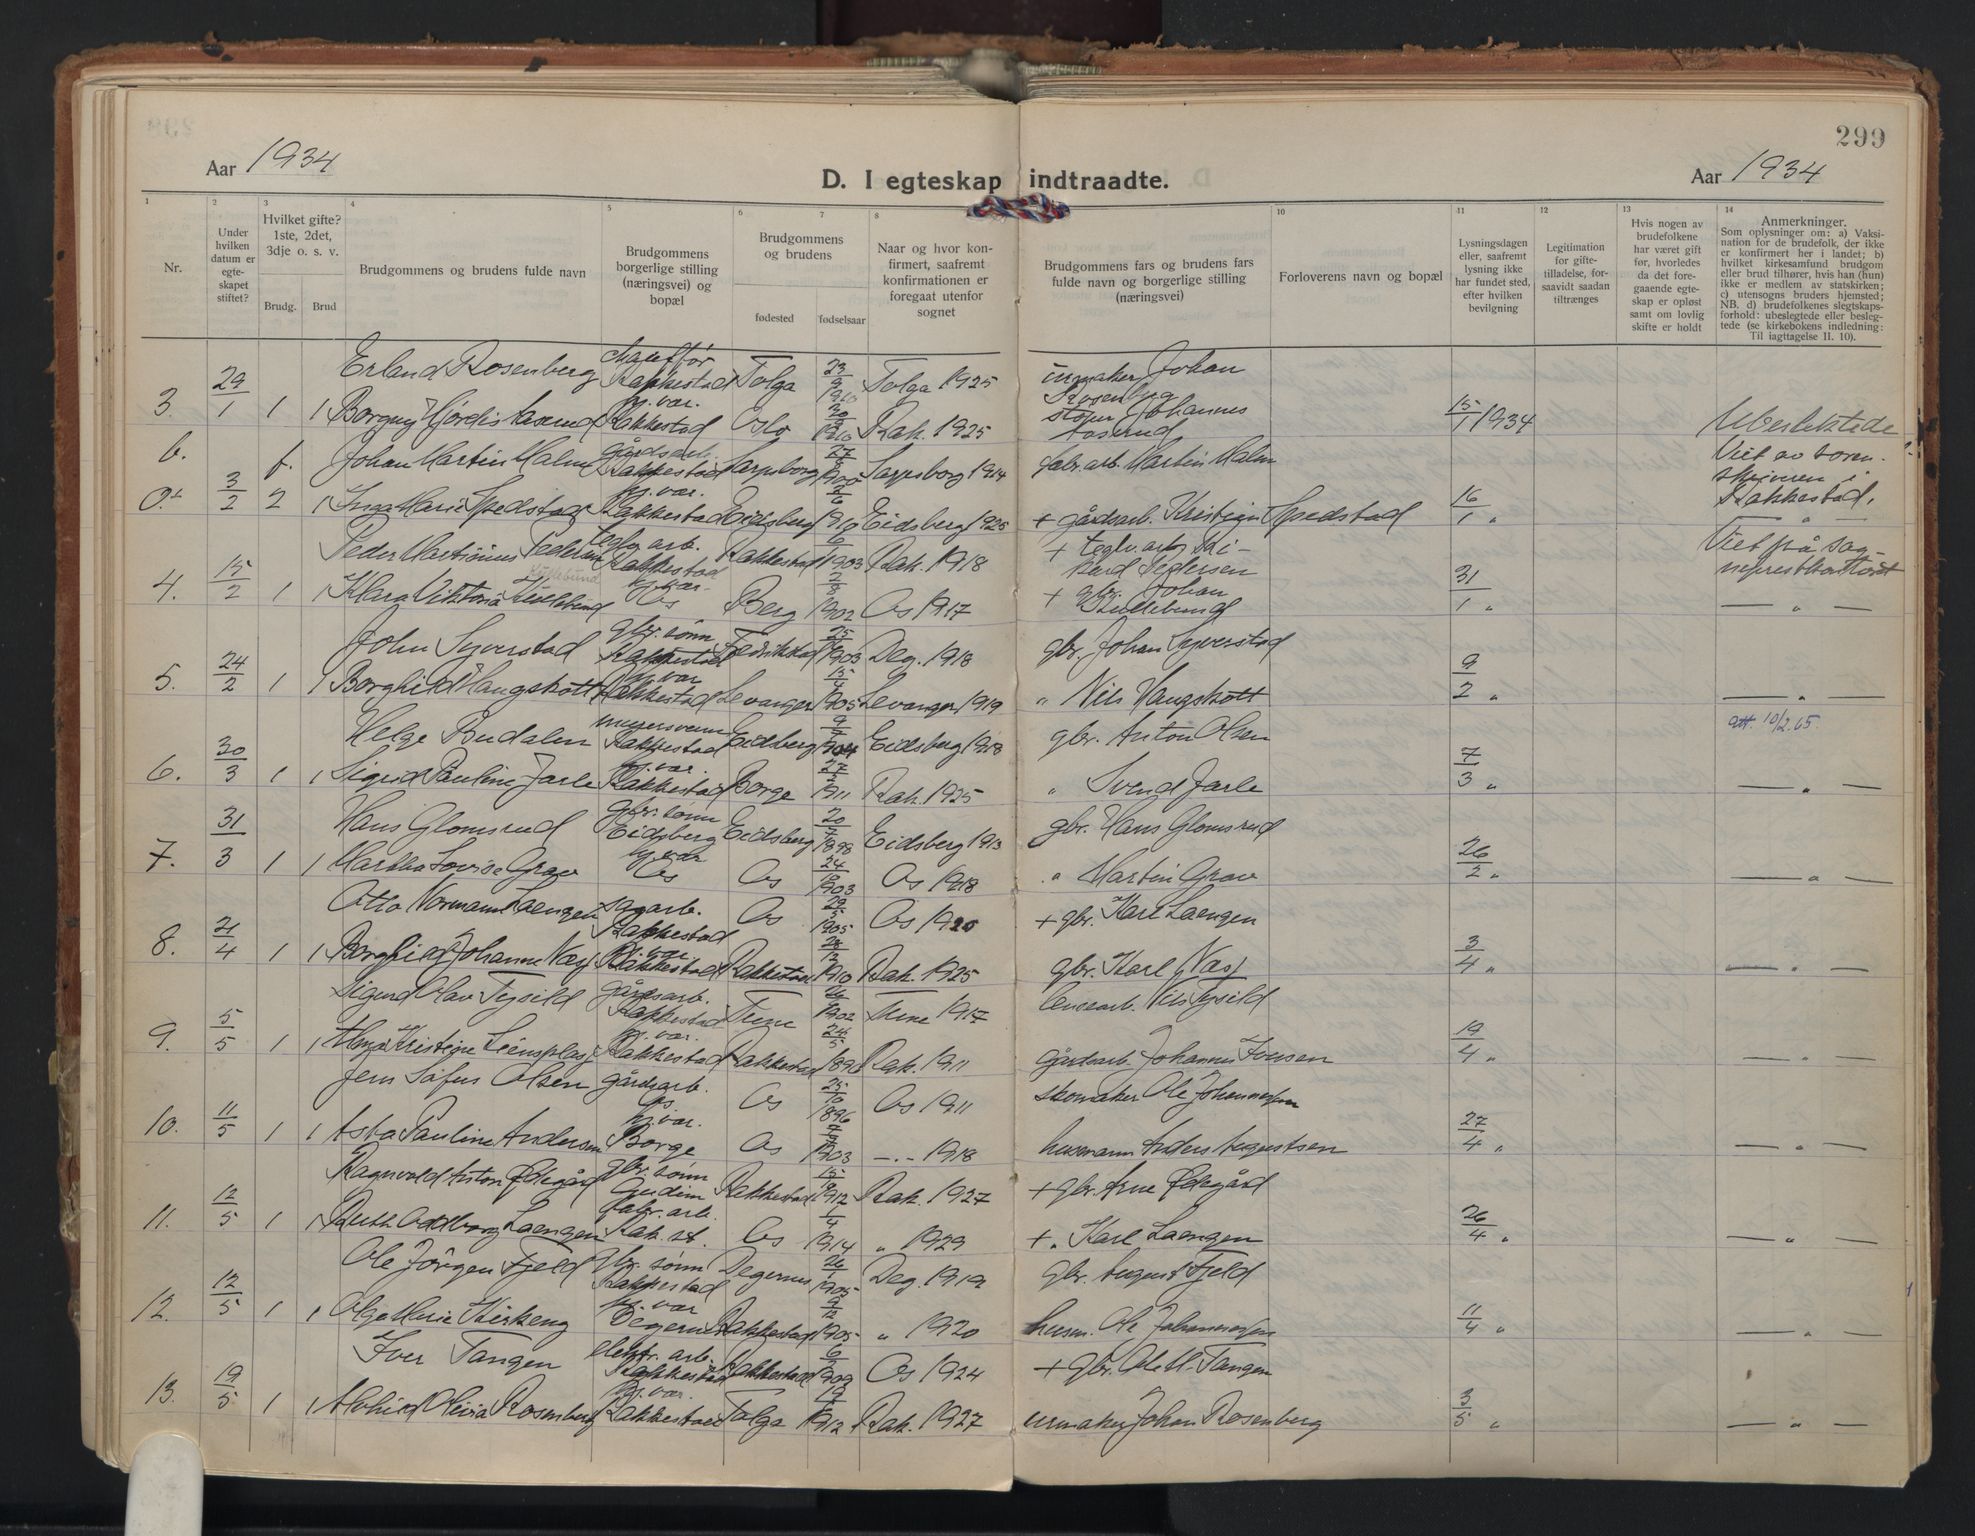 299
Aar 1934
D. I egteskap indtraadte.
Aar 1934
1 2 3 4 5 6 7 8 9 10 11 12 13 14
Nr.
Under hvilken datum er egte-skapet stiftet?
Hvilket gifte? 1ste, 2det, 3dje o. s. v.
Brudg. Brud
Brudgommens og brudens fulde navn
Brudgommens borgerlige stilling (næringsvei) og bopæl
Brudgommens og brudens
fødested fødselsaar
Naar og hvor kon-firmert, saafremt konfirmationen er foregaat utenfor sognet
Brudgommens fars og brudens fars fulde navn og borgerlige stilling (næringsvei)
Forloverens navn og bopæl
Lysningsdagen eller, saafremt lysning ikke har fundet sted, efter hvilken bevilgning
Legitimation for gifte-tilladelse, for-saavidt saadan tiltrænges
Hvis nogen av brudefolkene har været gift før, hvorledes da det fore-gaaende egte-skap er opløst samt om lovlig skifte er holdt
Anmerkninger.
Som oplysninger om: a) Vaksi-nation for de brudefolk, der ikke er konfirmert her i landet; b) hvilket kirkesamfund brudgom eller brud tilhører, hvis han (hun) ikke er medlem av statskirken; c) utensogns bruders hjemsted; NB. d) brudefolkenes slegtskaps-forhold: ubeslegtede eller besleg-tede (se kirkebokens indledning: Til iagttagelse II. 10).
Erland Rosenberg Rakkestad Tolga 23/9 1910 Tolga 1925 urmaker Johan Rosenberg
3. 29/1 1 1 Borgny Hjørdis Aaserud hj. vær. Rakkestad Oslo 1910 Rak. 1925 Johannes Aaserud 15/1 1934 Ubeslektede
b. f. Johan Martin Malm gårdsarb. Rakkestad Sarpsborg Sarpsborg 1914 fabr. arb. Martin Malm Viet av soren-skriveren i Rakkestad.
3/2 2 1 Inga Marie Spedstad hj. vær. Rakkestad Eidsberg 1910 Eidsberg 1925 + gårdsarb. Kristian Spedstad 16/1 "
Peder Martinius Pedersen teglv. arb. Rakkestad Rakkestad 1903 Rak. 1918 + teglv. arb. Pedersen Viet på
4. 15/2 1 1 Klara Viktoria Kullebund hj. vær. Os Berg 1902 Os 1917 + gbr. Johan Kullebund 31/1 " — " —
John Syverstad gbr. sønn Rakkestad Fredrikstad 25 1903 Deg. 1918 gbr. Johan Syverstad
5. 24/2 1 1 Borghild Haugskott hj. vær Rakkestad Levanger 15/4 1905 Levanger 1919 " Nils Haugskott 9/2 " — " —
Helge Budalen Rakkestad Eidberg 9 1904 Eidsberg 1918 gbr. Anton Olsen att. 10/2.65.
6. 30/3 1 1 Sigrid Pauline Jarle hj. vær. Rakkestad Borge 27 1911 Rak. 1925 " Svend Jarle 7/3 " — " —
Hans Glomsrud gbr. sønn Eidsberg Eidsberg 20 1898 Eidsberg 1913 gbr. Hans Glomsrud
7. 31/3 1 1 Martha Lovise Grav hj. vær Os Os 24 1903 Os 1918 " Martin Grav 26/2 " — " —
Otto Normann Laengen sagarb. Rakkestad Os 29/5 1905 Os 1920 + gbr. Karl Laengen
8. 21/4 1 1 Borghild Johanne Næss hj. vær Rakkestad Rakkestad 28/12 1910 Rak. 1925 gbr. Karl Næss 3/4 " — " —
Sigurd Olav Tysild gårdsarb. Rakkestad Tune 1902 Tune 1917 Nils Tysild
9. 5/5 1 1 Kristine Liensplass hj. vær. Rakkestad Rakkestad 24/5 1896 Rak. 1911 gårdsarb. Johannes Iversen 19/4 " — " —
Jens Sofus Olsen gårdsarb. Os Os 25/10 1896 Os 1911 skomaker Ole Johannessen
10. 11/5 1 1 Asta Pauline Andersen hj. vær. Borge Os 1903 —"— 1918 husmann Anders Augustsen 27/4 " — " —
Ragnvald Anton Ødegård gbr. sønn Gudim Rakkestad 15 1912 Rak. 1927 + gbr. Arne Ødegård
11. 12/5 1 1 Ruth Oddborg Laengen fabr. arb. Rak. st. Os 1/4 1914 " 1929 + " Karl Laengen 26/4 " — " —
Ole Jörgen Fjeld gbr. sønn Rakkestad Degernes 26 1905 Deg. 1919 gbr. August Fjeld
12. 12/5 1 1 Olga Marie Kirkeng hj. vær Degernes Rakkestad 9/12 1905 " 1920 husm. Ole Johannessen 11/4 " — " —
Iver Tangen elektr. arb. Rakkestad Rakkestad 6 1909 Os 1924 + gbr. Ole H. Tangen
13. 19/5 1 1 Alvhild Olivia Rosenberg hj. vær. Rakkestad Tolga 1912 Rak. 1927 urmaker Johan Rosenberg 3/5 " — " —